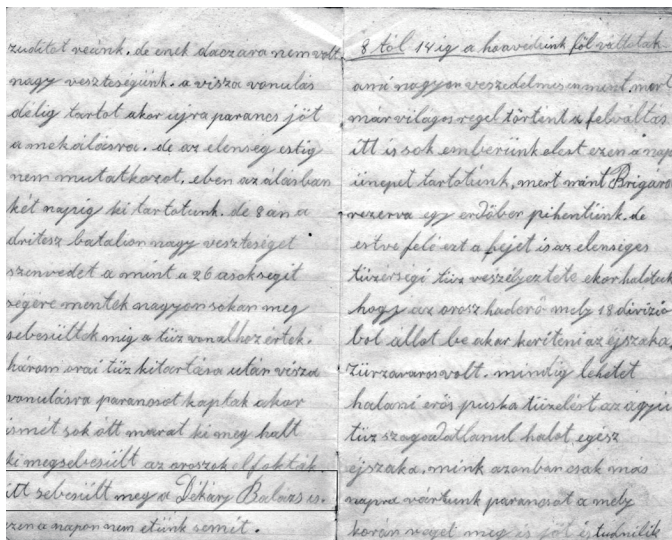 zuditot veánk. de enek daczára nem volt
nagy veszteségünk. a visza vonulás
délig tartot akor ujra parancs jöt
a mekálásra. de az elenség estig
nem mutatkozot. eben az álásban
két napig ki tartotunk. de 8 an a
dritesz batalion nagy veszteséget
szenvedet a mint a 26 asok segit
ségére mentek nagyon sokan meg
sebesültek mig a tüz vonalhoz értek.
három orai tüz kitartása után visza
vonulásra parancsot kaptak akor
ismét sok ott marat ki meg halt
ki megsebesült az oroszok elfokták
itt sebesült meg a Dékány Balázs is.
ezen a napon nem etünk semit.
8 tól 14 ig a honvédeink föl váltotak
ami nagyon veszedelmesen ment, mert
már világos regel történt a felváltás
itt is sok emberünk elest ezen a nap
ünepet tartotunk, mert mánt Brigard
rezerva egy erdőber pihentünk. de
estve felé ezt a fejét is az elenséges
tüzérségi tüz veszélyeztete ekor halotuk
hogy az orosz haderő mely 18 divizio
bol állot be akar keriteni az ejszaka,
zürzavaros volt. mindig lehetet
halani erős puska tüzelést az agyu
tüz szagadatlanul halot egész
éjszaka, mink azonban csak más
napra vártunk parancsot a mely
korán reget meg is jöt és tudnilik